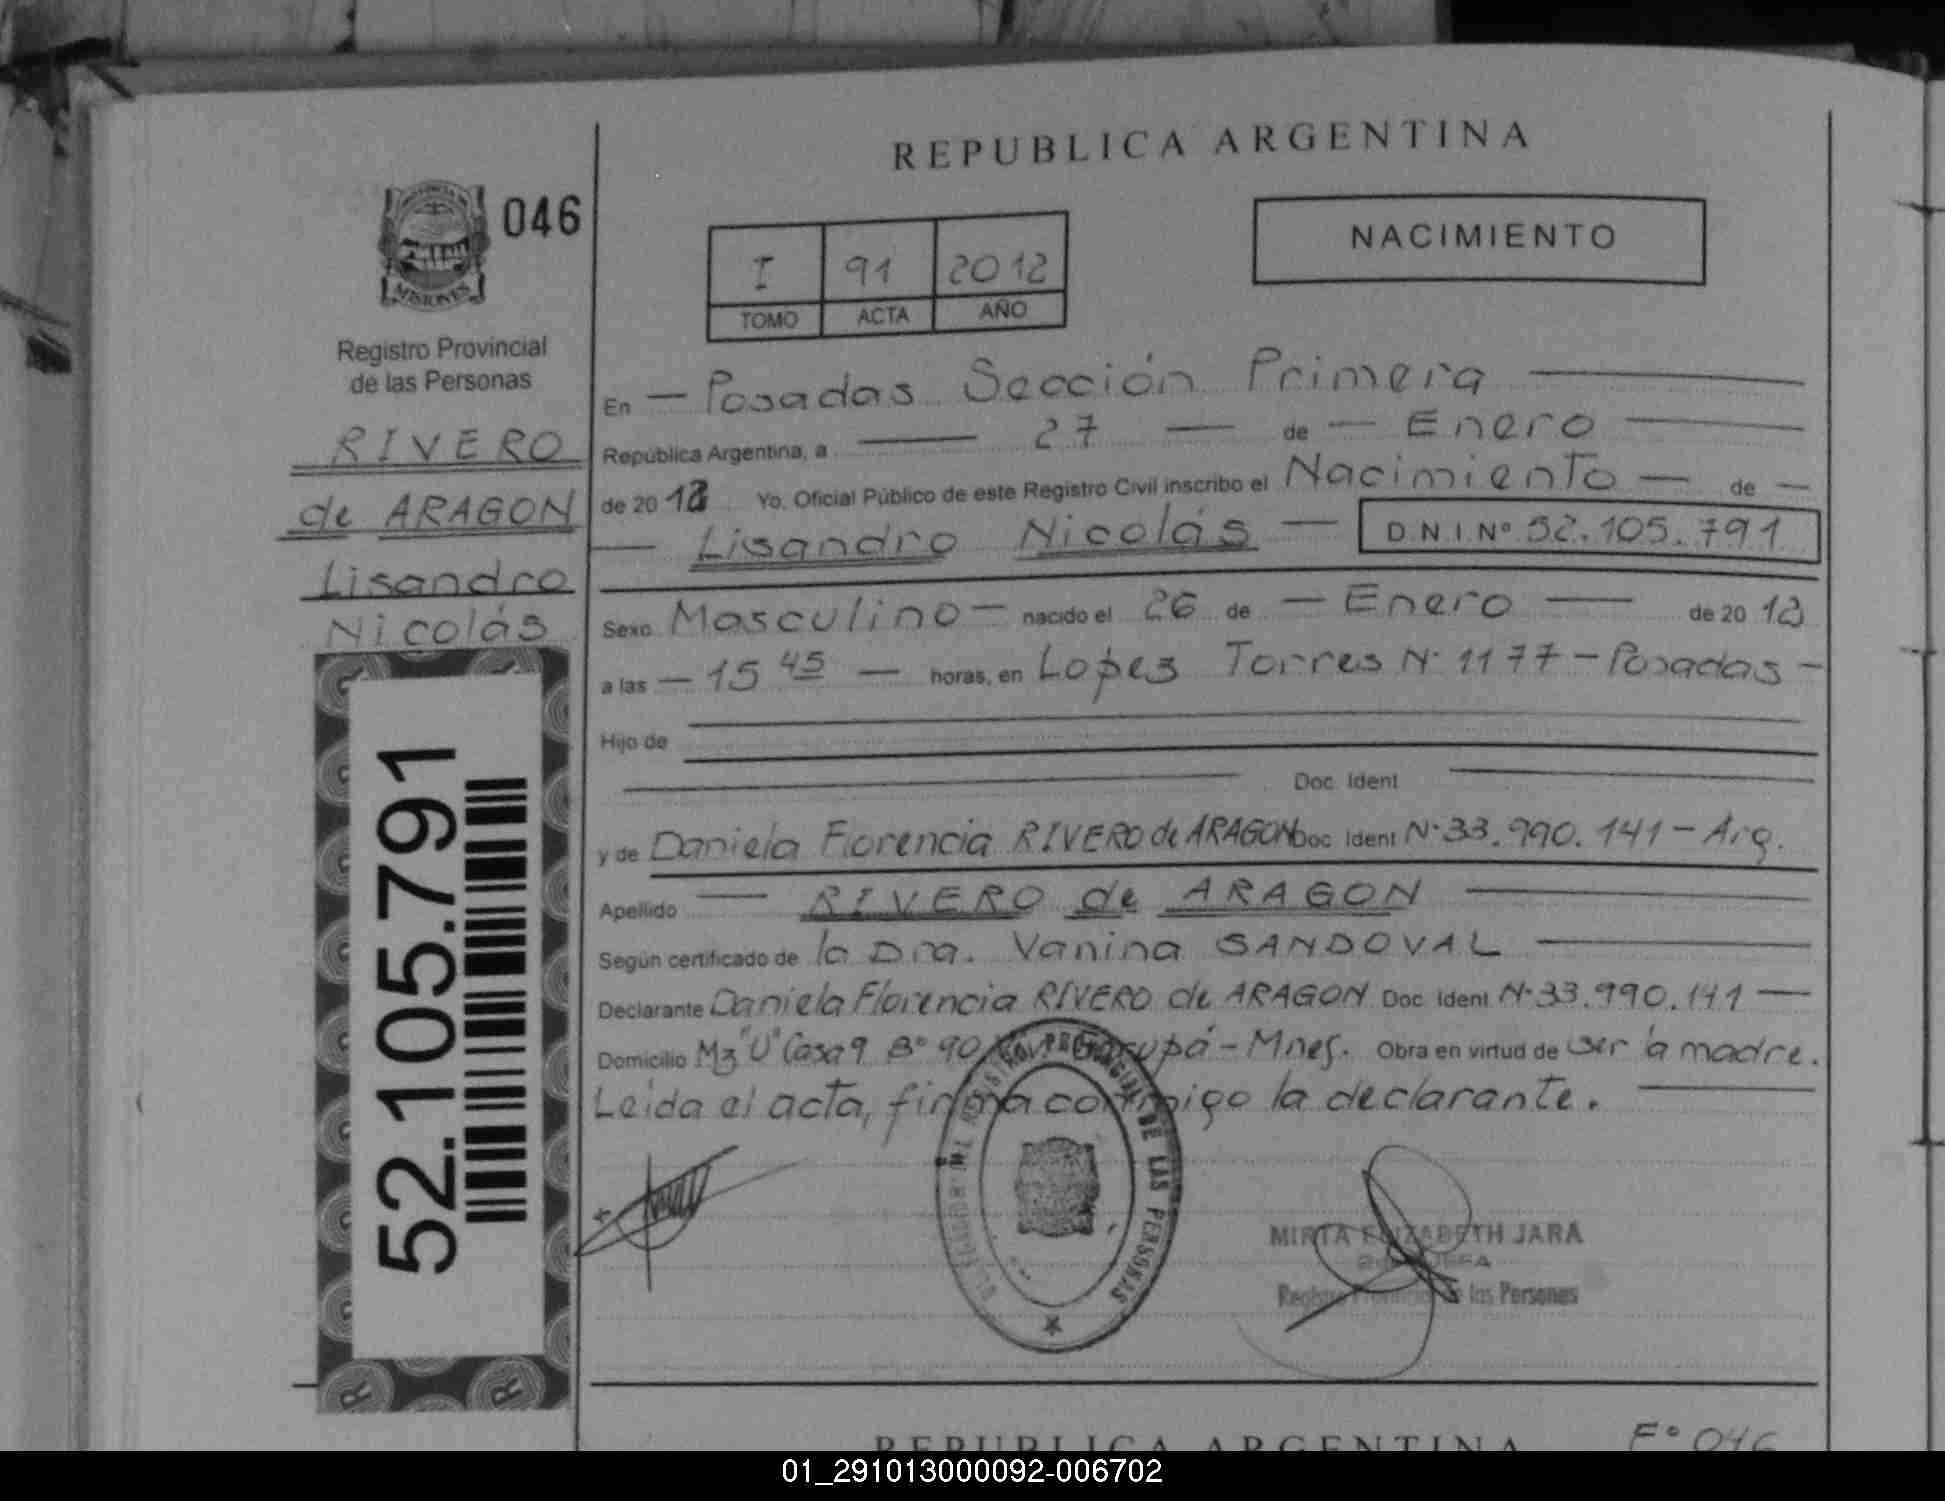 REPUBLICA ARGENTINA
046
MISIONES
NACIMIENTO
I 91 2012
TOMO ACTA AÑO
Registro Provincial
de las Personas
RIVERO
de ARAGON
Lisandro
Nicolás
52.105.791
En — Posadas Sección Primera —
República Argentina, a — 27 — de — Enero —
de 2012 Yo, Oficial Público de este Registro Civil inscribo el Nacimiento — de —
— Lisandro Nicolás — D.N.I. Nº 52.105.791
Sexo Masculino — nacido el 26 de — Enero — de 2012
a las — 15 45 — horas, en Lopez Torres Nº 1177 - Posadas -
Hijo de
Doc. Ident
y de Daniela Florencia RIVERO de ARAGON Doc Ident Nº 33.990.141 - Arg.
Apellido — RIVERO de ARAGON —
Según certificado de la Dra. Vanina SANDOVAL —
Declarante Daniela Florencia RIVERO de ARAGON Doc Ident Nº 33.990.141 —
Domicilio Mz "U" Casa 9 Bº 90 Garupá - Mnes. Obra en virtud de ser la madre.
Leida el acta, firma conmigo la declarante. —
REGISTRO PROVINCIAL DE LAS PERSONAS
MIRTA ELIZABETH JARA
Registro Provincial de las Personas
REPUBLICA ARGENTINA
Fº 046
01_291013000092-006702